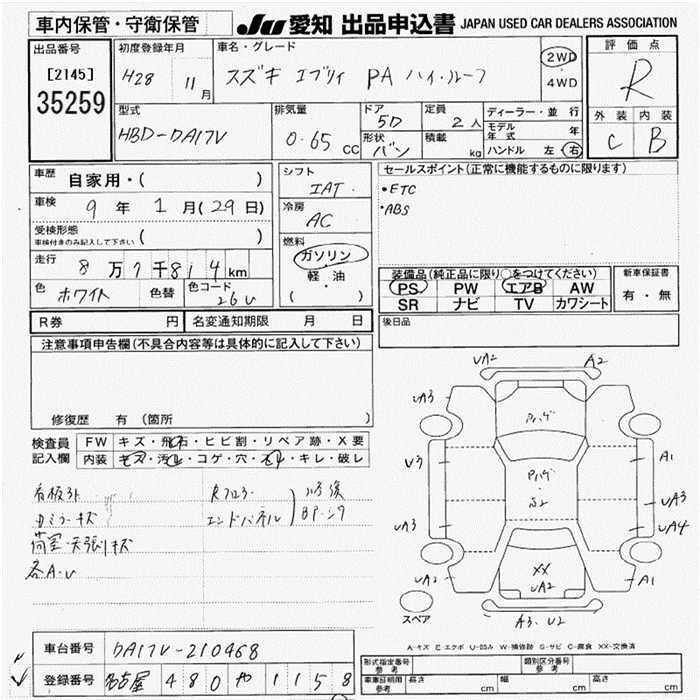 車内保管・守衛保管
JU 愛知 出品申込書 JAPAN USED CAR DEALERS ASSOCIATION
出品番号
[2145]
35259
初度登録年月
H28 11月
車名・グレード
スズキ エブリィ PA ハイ・ルーフ
2WD
4WD
評価点
R
外装 内装
C B
型式
HBD-DA17V
排気量
0.65 cc
ドア
5D
形状
バン
定員
2人
積載
kg
ディーラー・並行
モデル年式 年
ハンドル 左・右
車歴
自家用・( )
車検
9年 1月(29日)
受検形態
車検付きのみ記入して下さい ( )
走行
8万7千814km
色
ホワイト
色替
色コード
26U
シフト
IAT
冷房
AC
燃料
ガソリン
軽・油
( )
セールスポイント(正常に機能するものに限ります)
•ETC
•ABS
装備品(純正品に限り○をつけてください)
PS PW エアB AW
SR ナビ TV カワシート
新車保証書
有・無
後日品
R券 円
名変通知期限 月 日
注意事項申告欄(不具合内容等は具体的に記入して下さい)
修復歴 有 (箇所
検査員記入欄
FW キズ・飛石・ヒビ割・リペア跡・X要
内装 キズ・汚れ・コゲ・穴・スレ・キレ・破レ
看板跡
Rフロアー
エンドパネル
カミラーキズ
荷室・天張リキズ
各A・U
UA2 A2
UA3
Pハゲ
V3
A1
Pハゲ
UA3
UA3
UA4
XX
UA2
UA2
A1
A3.U2
スペア
A-キズ E-エクボ U-凹み W-補修跡 S-サビ C-腐食 XX-交換済
車台番号
DA17V-210468
登録番号
名古屋 480 や 1158
形式指定番号 参考
類別区分番号 参考
車庫証明用 参考
長さ cm
幅 cm
高さ cm